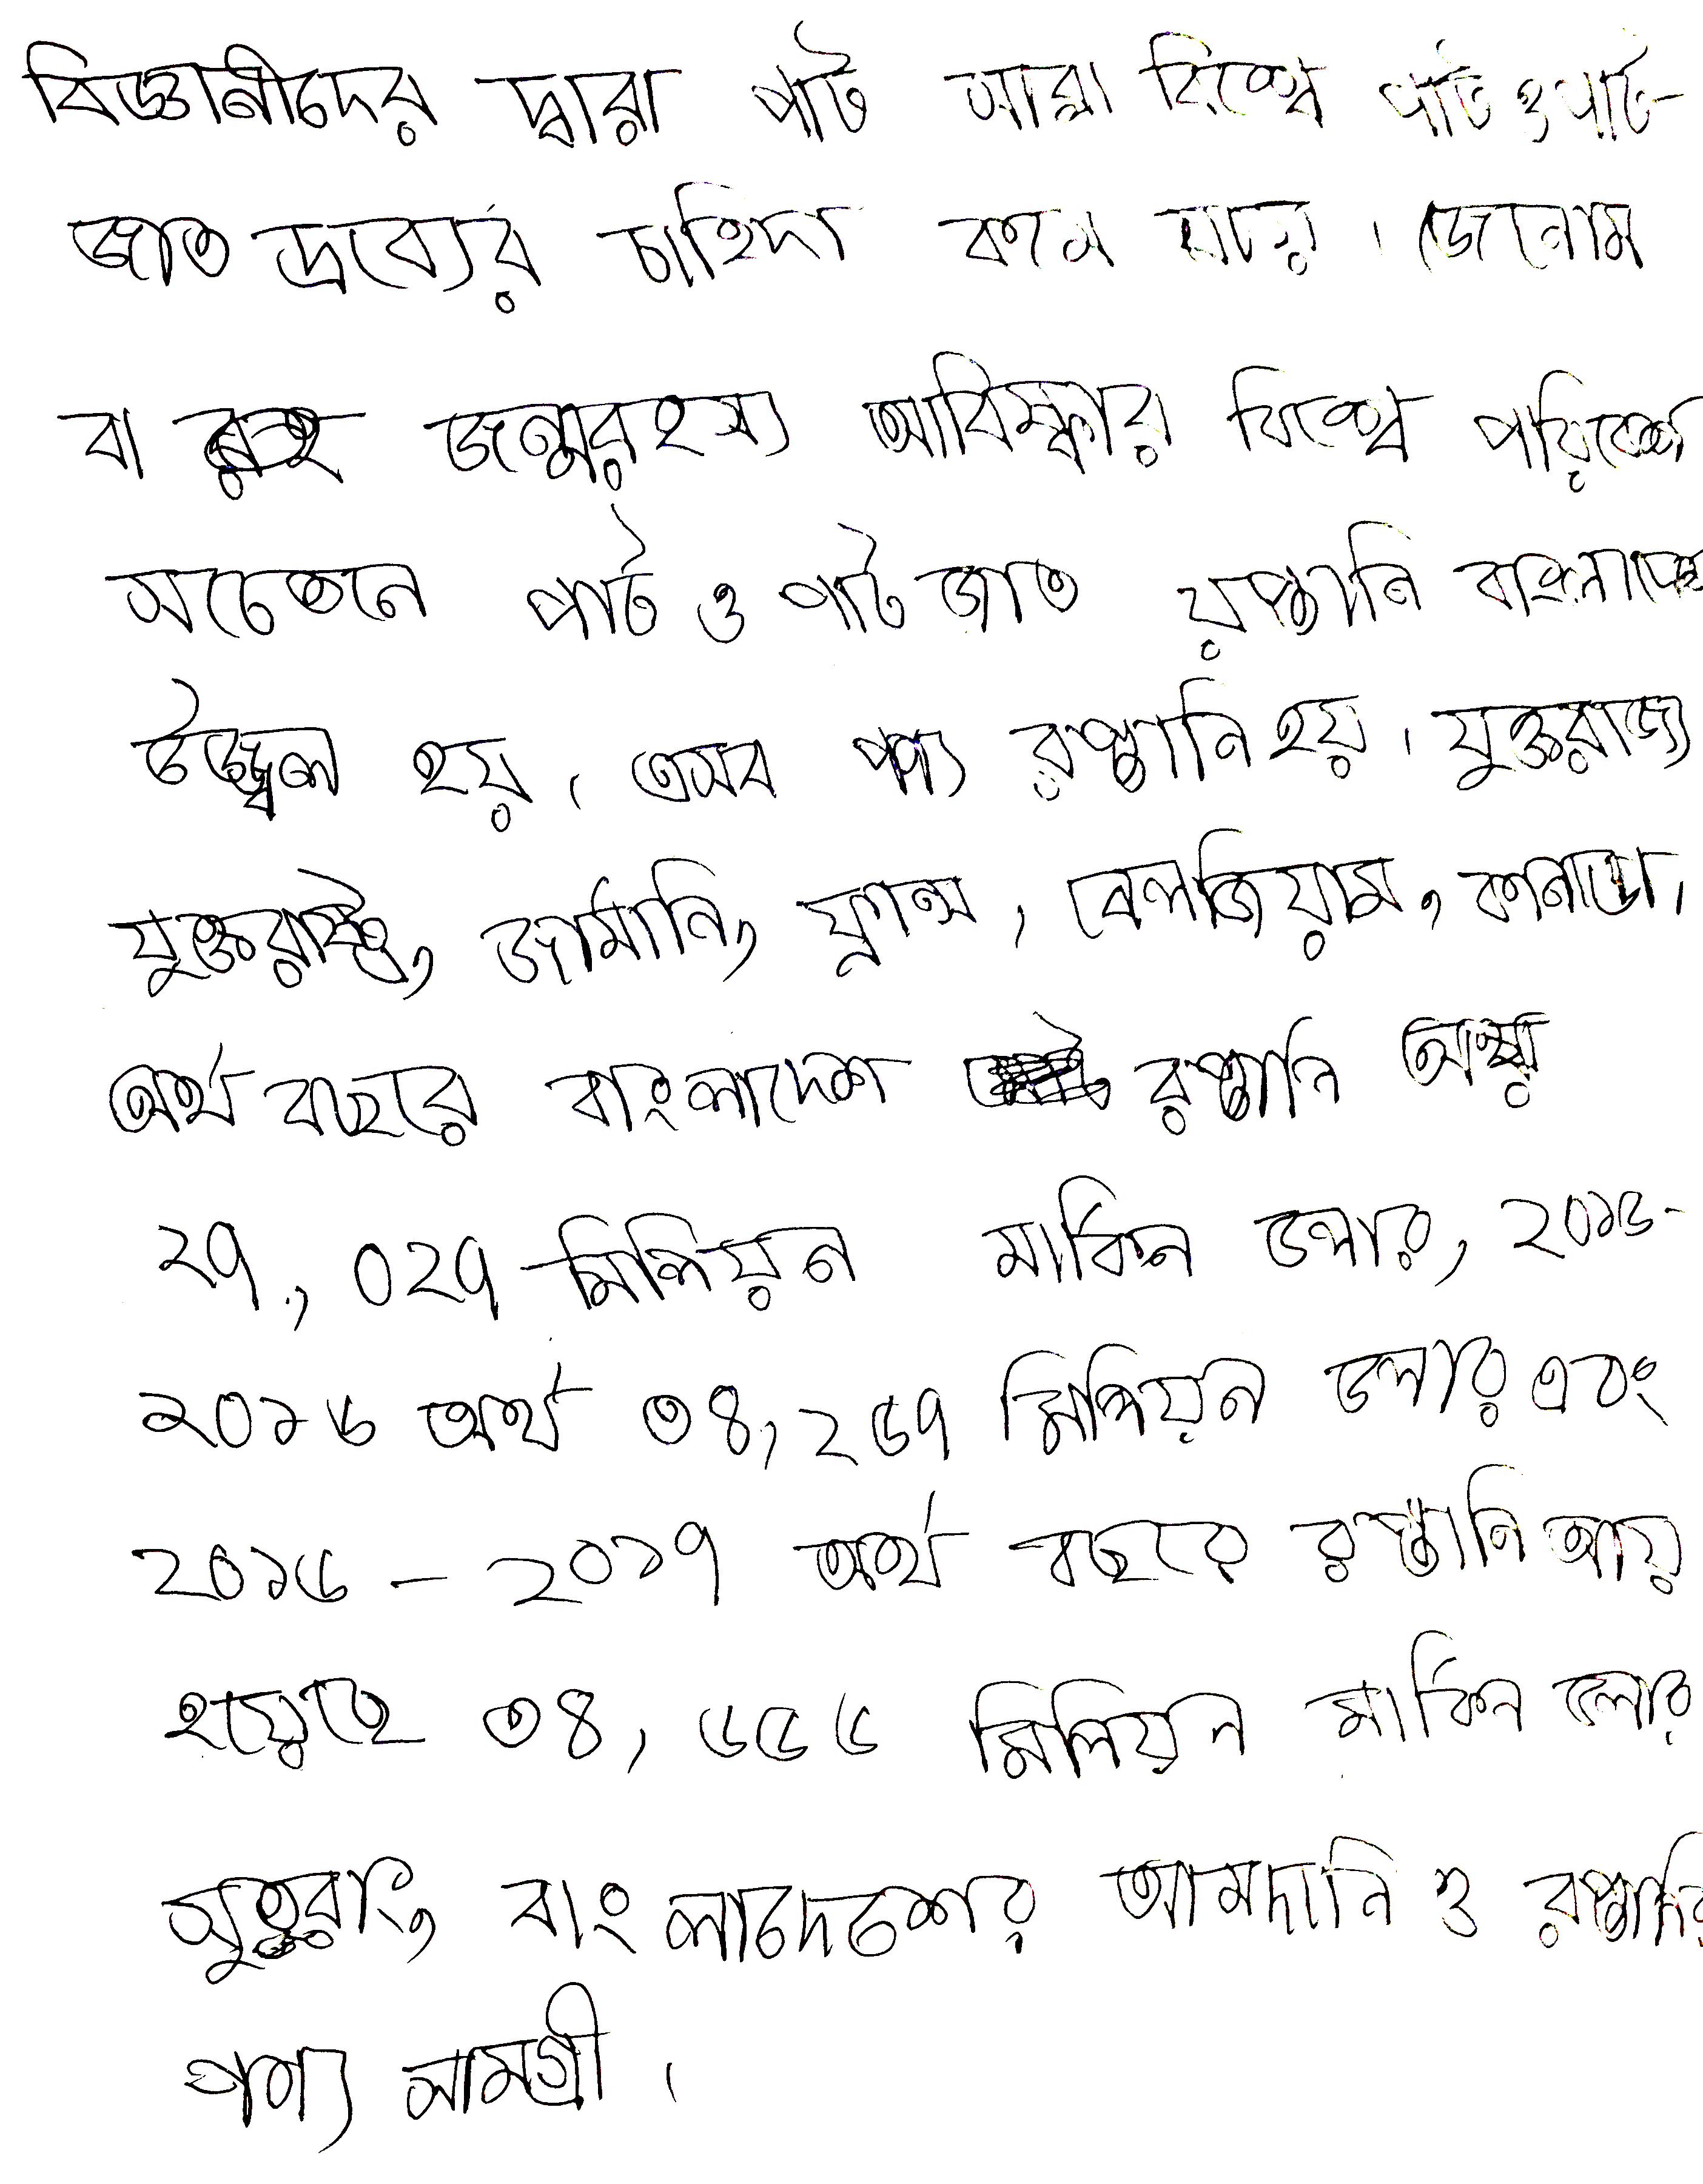 বিজ্ঞানীদের দ্বারা পাট সারা বিশ্বে পাট ও পাট-
জাত দ্রব্যের চাহিদা কমে যায়। জেনোম
বা জন্মরহস্য আবিষ্কার বিশ্বে পরিবেশ
সচেতনে পাট ও পাট জাত রপ্তানি
উজ্জ্বল হয়। এসব পণ্য রপ্তানি হয়। যুক্তরাজ্য
যুক্তরাষ্ট্র, জার্মানি, ফ্রান্স, বেলজিয়াম, কানাডা।
অর্থ বছরে বাংলাদেশ রপ্তানি আয়
২৭, ০২৭ মিলিয়ন মার্কিন ডলার, ২০১৬-
২০১৬ অর্থ ৩৪, ২৫৭ মিলিয়ন ডলার এবং
২০১৬ - ২০১৭ অর্থ বছরে রপ্তানি আয়
হয়েছে ৩৪, ৬৫৫ মিলিয়ন মার্কিন ডলার
সুতরাং, বাংলাদেশের আমদানি ও রপ্তানির
পণ্য সামগ্রী।